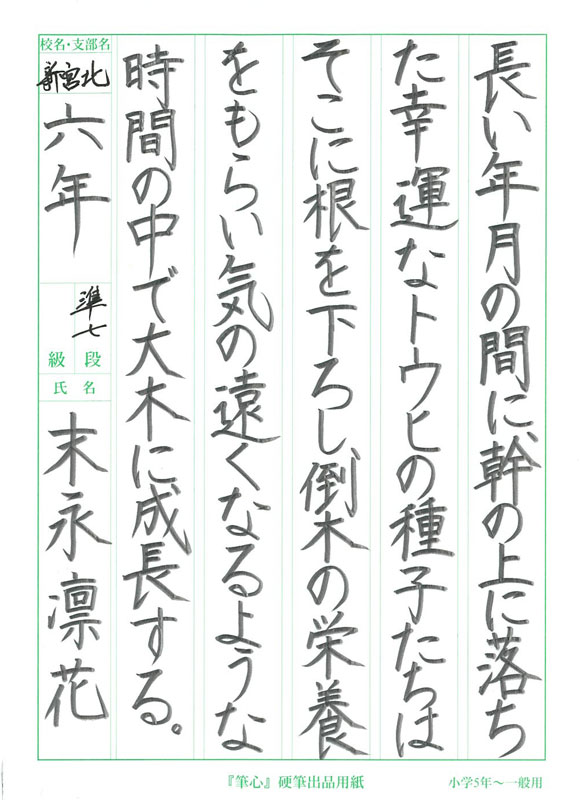 長い年月の間に、幹の上に落ち
た幸運なトウヒの種子たちは
そこに根を下ろし、倒木の栄養
をもらい気の遠くなるような
時間の中で大木に成長する。
校名・支部名
新宮北
六年
準七
級 段
氏 名
末永凛花
『筆心』硬筆出品用紙
小学5年〜一般用